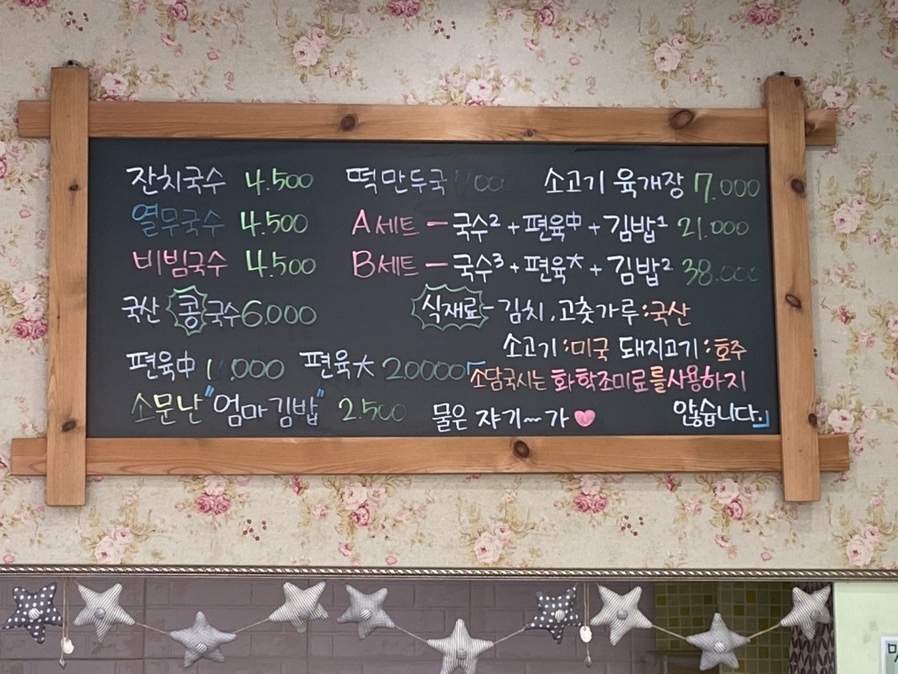 잔치국수 4.500
열무국수 4.500
비빔국수 4.500
국산 콩국수 6.000
편육中 편육大 20000
소문난 "엄마김밥" 2.500
떡만두국
소고기 육개장 7.000
A세트 - 국수² + 편육中 + 김밥¹ 21.000
B세트 - 국수³ + 편육大 + 김밥² 38.000
식재료 - 김치, 고춧가루:국산
소고기:미국 돼지고기:호주
「소담국시는 화학조미료를 사용하지
않습니다.」
물은 쟈기~가 ♥